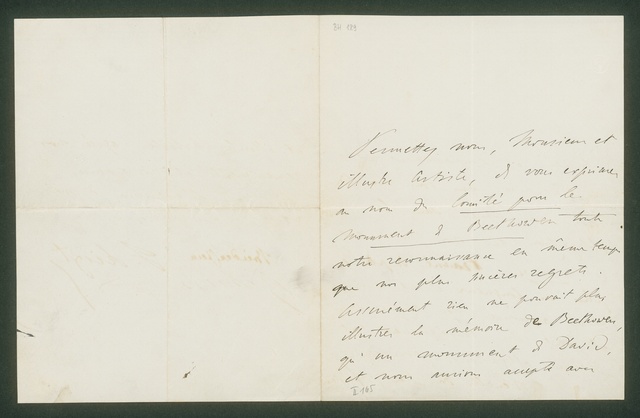 BH 189
Permettez nous, Monsieur et
illustre Artiste, de vous exprimer
au nom du Comité pour le
Monument de Beethoven toute
notre reconnaissance en même temps
que nos plus sincères regrets.
Assurément rien ne pouvait plus
illustrer la mémoire de Beethoven,
qu'un monument de David,
et nous aurions accepté avec